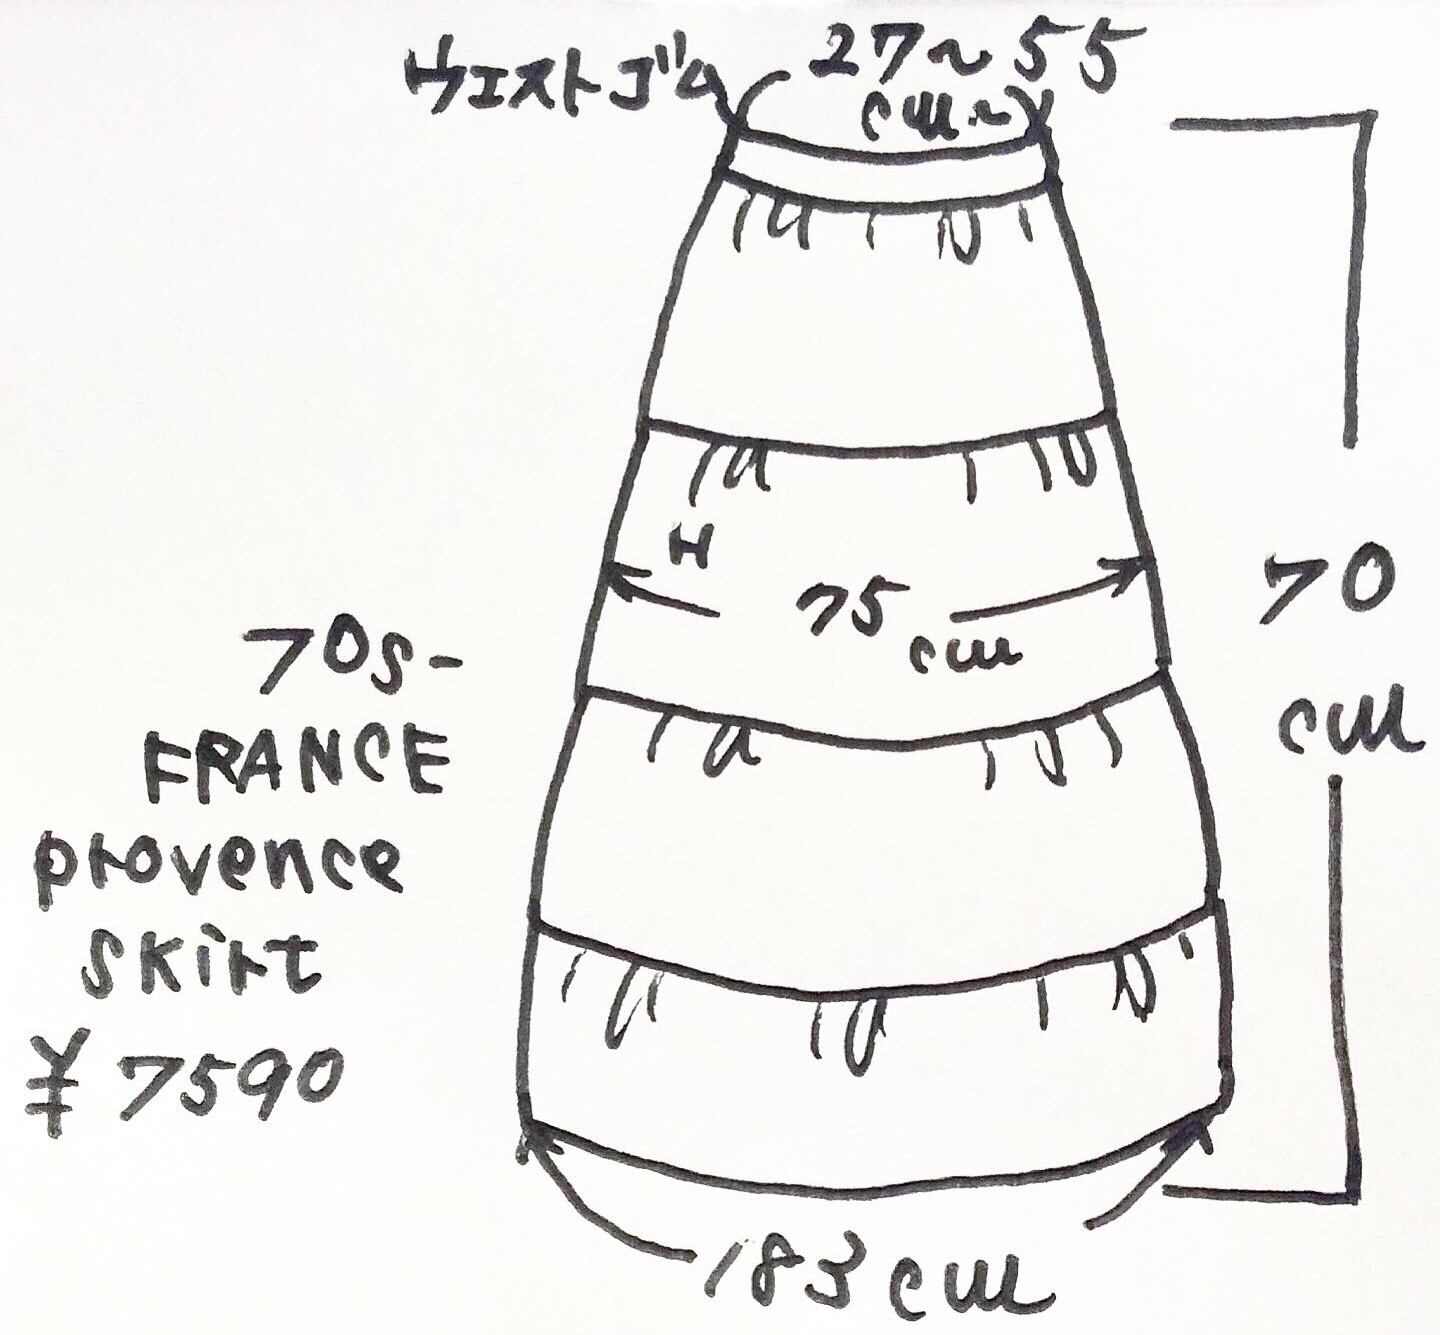 ウエストゴム
27~55
cm~
H
75
cm
70
cm
70s-
FRANCE
provence
SKirt
¥7590
183cm